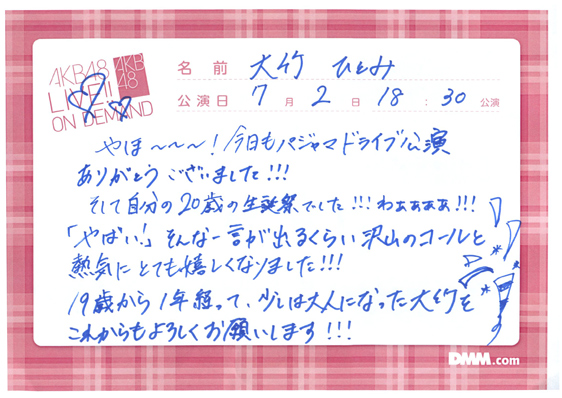 AKB48
LIVE!!
ON DEMAND
AKB
48
名前 大竹 ひとみ
公演日 7月2日 18:30公演
やほ〜〜〜!今日もパジャマドライブ公演
ありがとうございました!!!
そして自分の20歳の生誕祭でした!!!わぁぁぁぁ!!!
「やばい!」そんな一言が出るくらい沢山のコールと
熱気にとても嬉しくなりました!!!
19歳から1年経って、少しは大人になった大竹を
これからもよろしくお願いします!!!
DMM.com